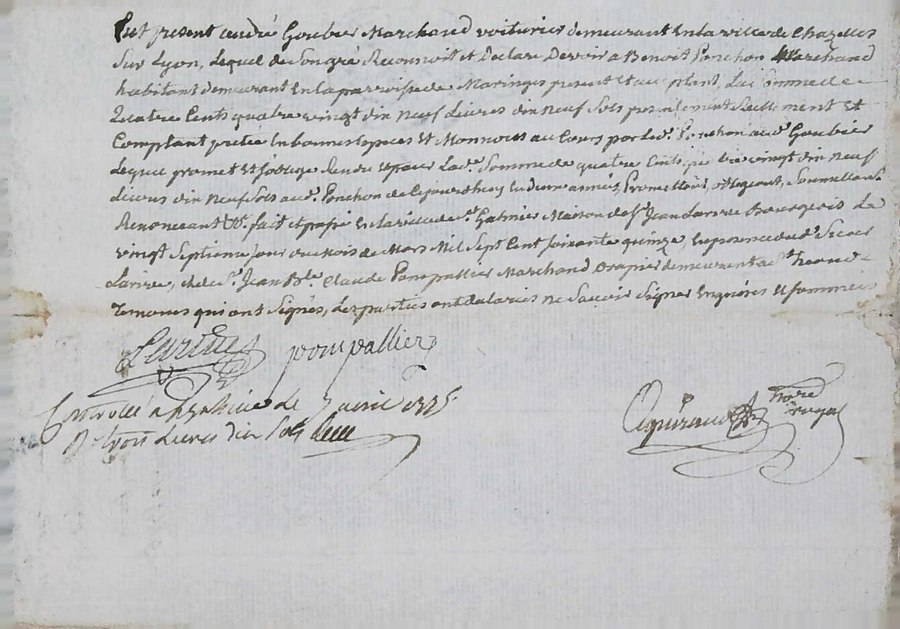 Fut présent André Goubier Marchand voiturier demeurant En la ville de Chazelles
Sur Lyon, Lequel de Son gré Reconnoit et Declare Devoir a Benoit Ponchon Marchand
habitant demeurant En la parroisse de Maringes present et acceptant, La Somme de
Quatre Cents quatre vingt dix neuf Livres dix neuf Sols reellement Et
Comptant pretée En bonnes Especes Et Monnoies au Cours par led. Ponchon aud. Goubier
Lequel promet Et s'oblige Rendre et payer Lad. Somme de quatre Cents quatre vingt dix neuf
Livres dix neuf Sols aud. Ponchon de Cejourdhuy En une année, Promettant, obligeant, Soumettant
Renonceant &c. fait et passé En la ville de St. Galmier Maison de Sr. Jean Bourgeois Le
vingt Septieme Jour du Mois de Mars Mil Sept Cent Soixante quinze En presence dud. Sieur
, & de Sr. Jean Bte. Claude Pompallier Marchand Drapier demeurent aud. St.
Temoins qui ont Signés, Les parties ont declarées ne Savoir Signer Enquises Et Sommées
pompallier
Controllé a St Galmier le 7 avril 1775
R. trois Livres dix Sols
nore
royal